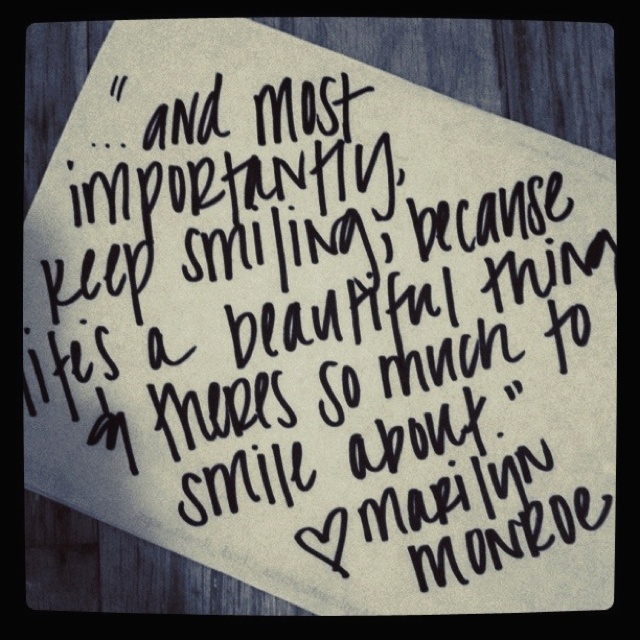 "
... and most
importantly,
keep smiling, because
life's a beautiful thing
& theres so much to
smile about."
♡ marilyn
monroe